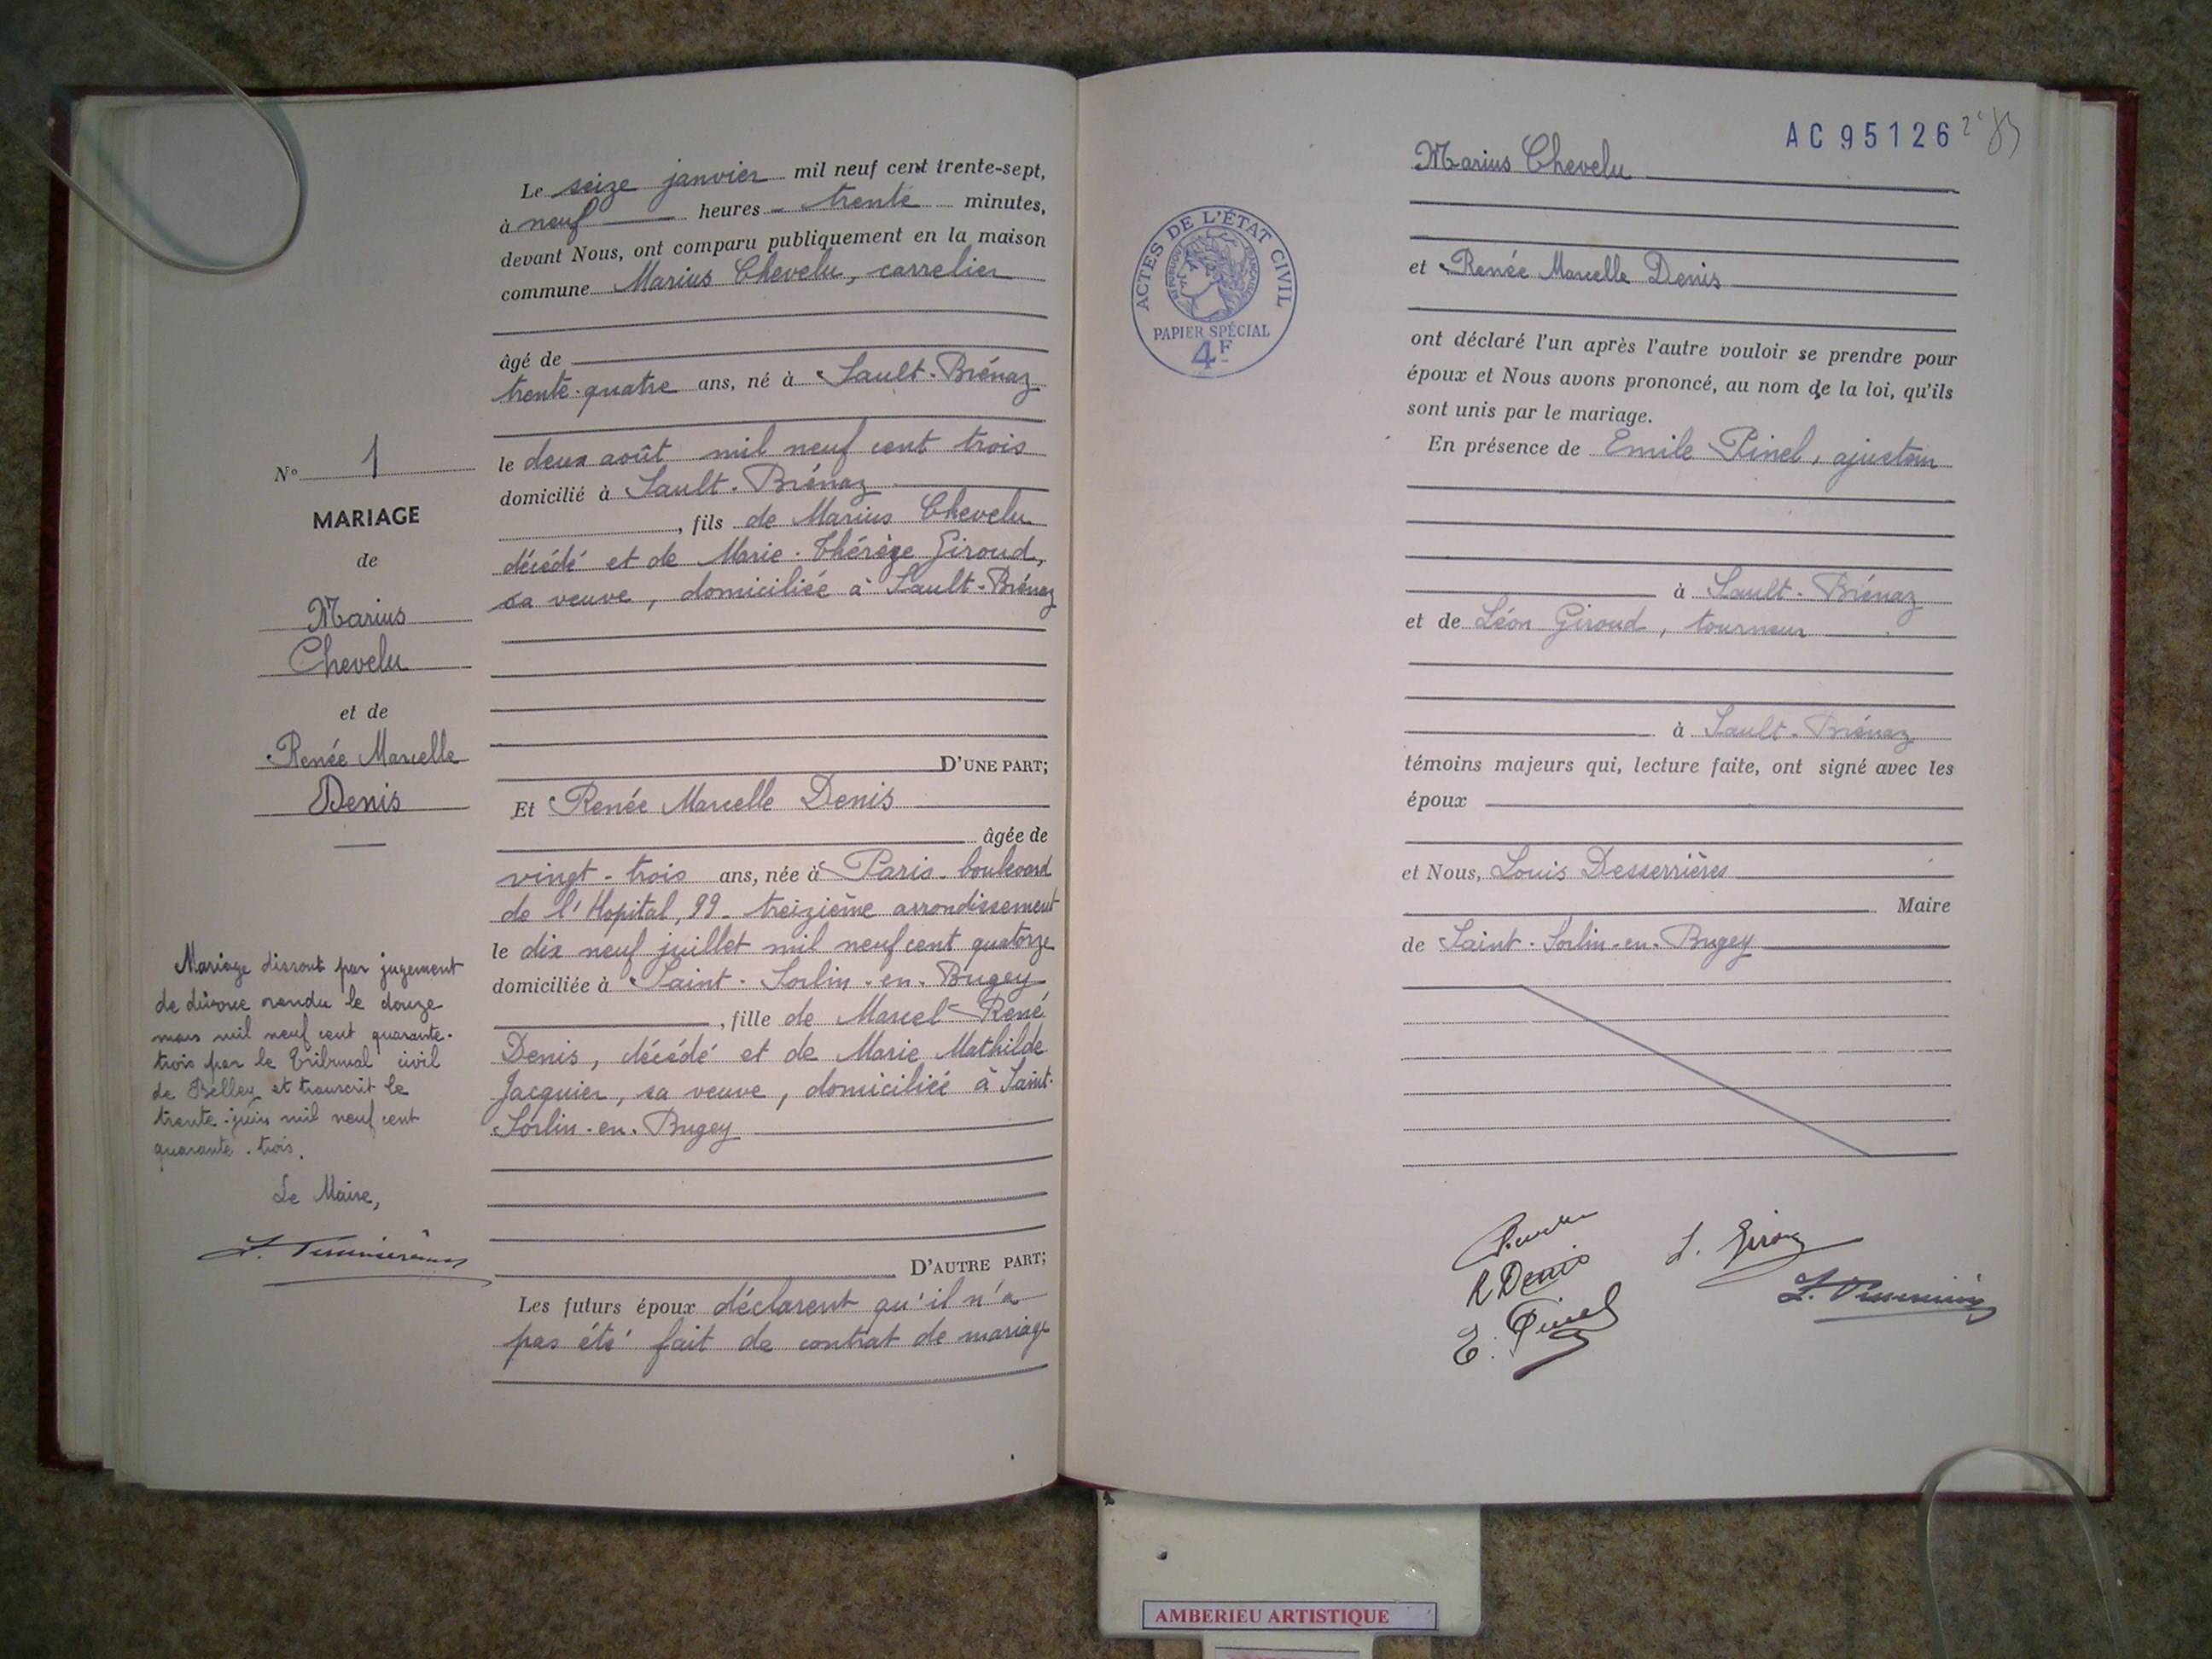 Le seize janvier mil neuf cent trente-sept,
à neuf heures trente minutes,
devant Nous, ont comparu publiquement en la maison
commune Marius Chevelu, carrelier
âgé de
trente-quatre ans, né à Sault-Briénaz
le deux août mil neuf cent trois
domicilié à Sault-Briénaz
, fils de Marius Chevelu
décédé et de Marie-Thérèze Giroud,
sa veuve, domiciliée à Sault-Briénaz
D'UNE PART;
Et Renée Marcelle Denis
âgée de
vingt-trois ans, née à Paris-boulevard
de l'Hopital, 99- treizième arrondissement
le dix neuf juillet mil neuf cent quatorze
domiciliée à Saint-Sorlin-en-Bugey
, fille de Marcel René
Denis, décédé et de Marie Mathilde
Jacquier, sa veuve, domiciliée à Saint-
Sorlin-en-Bugey
D'AUTRE PART;
Les futurs époux déclarent qu'il n'a
pas été fait de contrat de mariage
N° 1
MARIAGE
de
Marius
Chevelu
et de
Renée Marcelle
Denis
Mariage dissout par jugement
de divorce rendu le douze
mars mil neuf cent quarante-
trois par le Tribunal civil
de Belley et transcrit le
trente-juin mil neuf cent
quarante-trois.
Le Maire,
AC 95126
Marius Chevelu
et Renée Marcelle Denis
ont déclaré l'un après l'autre vouloir se prendre pour
époux et Nous avons prononcé, au nom de la loi, qu'ils
sont unis par le mariage.
En présence de Emile Pinel, ajusteur
à Sault-Briénaz
et de Léon Giroud, tourneur
à Sault-Briénaz
témoins majeurs qui, lecture faite, ont signé avec les
époux
et Nous, Louis Desserrières
Maire
de Saint-Sorlin-en-Bugey
R Denis
E. Pinel
ACTES DE L'ÉTAT CIVIL
RÉPUBLIQUE FRANÇAISE
PAPIER SPÉCIAL
4F
AMBERIEU ARTISTIQUE